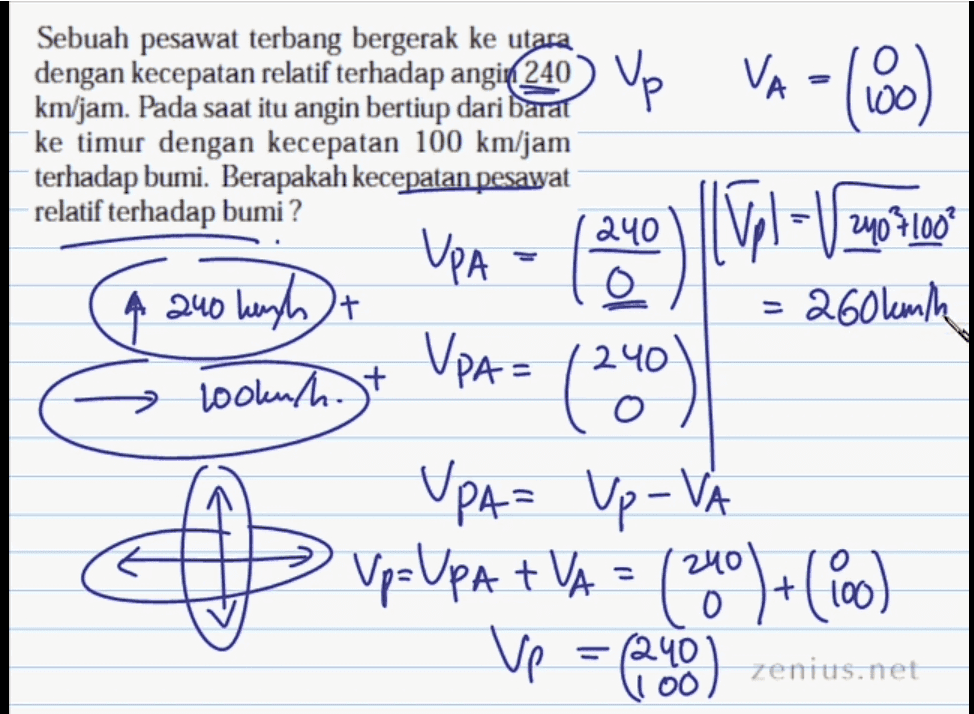 Sebuah pesawat terbang bergerak ke utara
dengan kecepatan relatif terhadap angin 240
km/jam. Pada saat itu angin bertiup dari barat
ke timur dengan kecepatan 100 km/jam
terhadap bumi. Berapakah kecepatan pesawat
relatif terhadap bumi ?
Vp
VA = (0 100)
↑ 240 km/h +
→ 100 km/h. +
VPA = (240 0)
VPA = (240 0)
|Vp| = √240²+100²
= 260 km/h
VPA = Vp - VA
Vp = VPA + VA = (240 0) + (0 100)
Vp = (240 100)
zenius.net